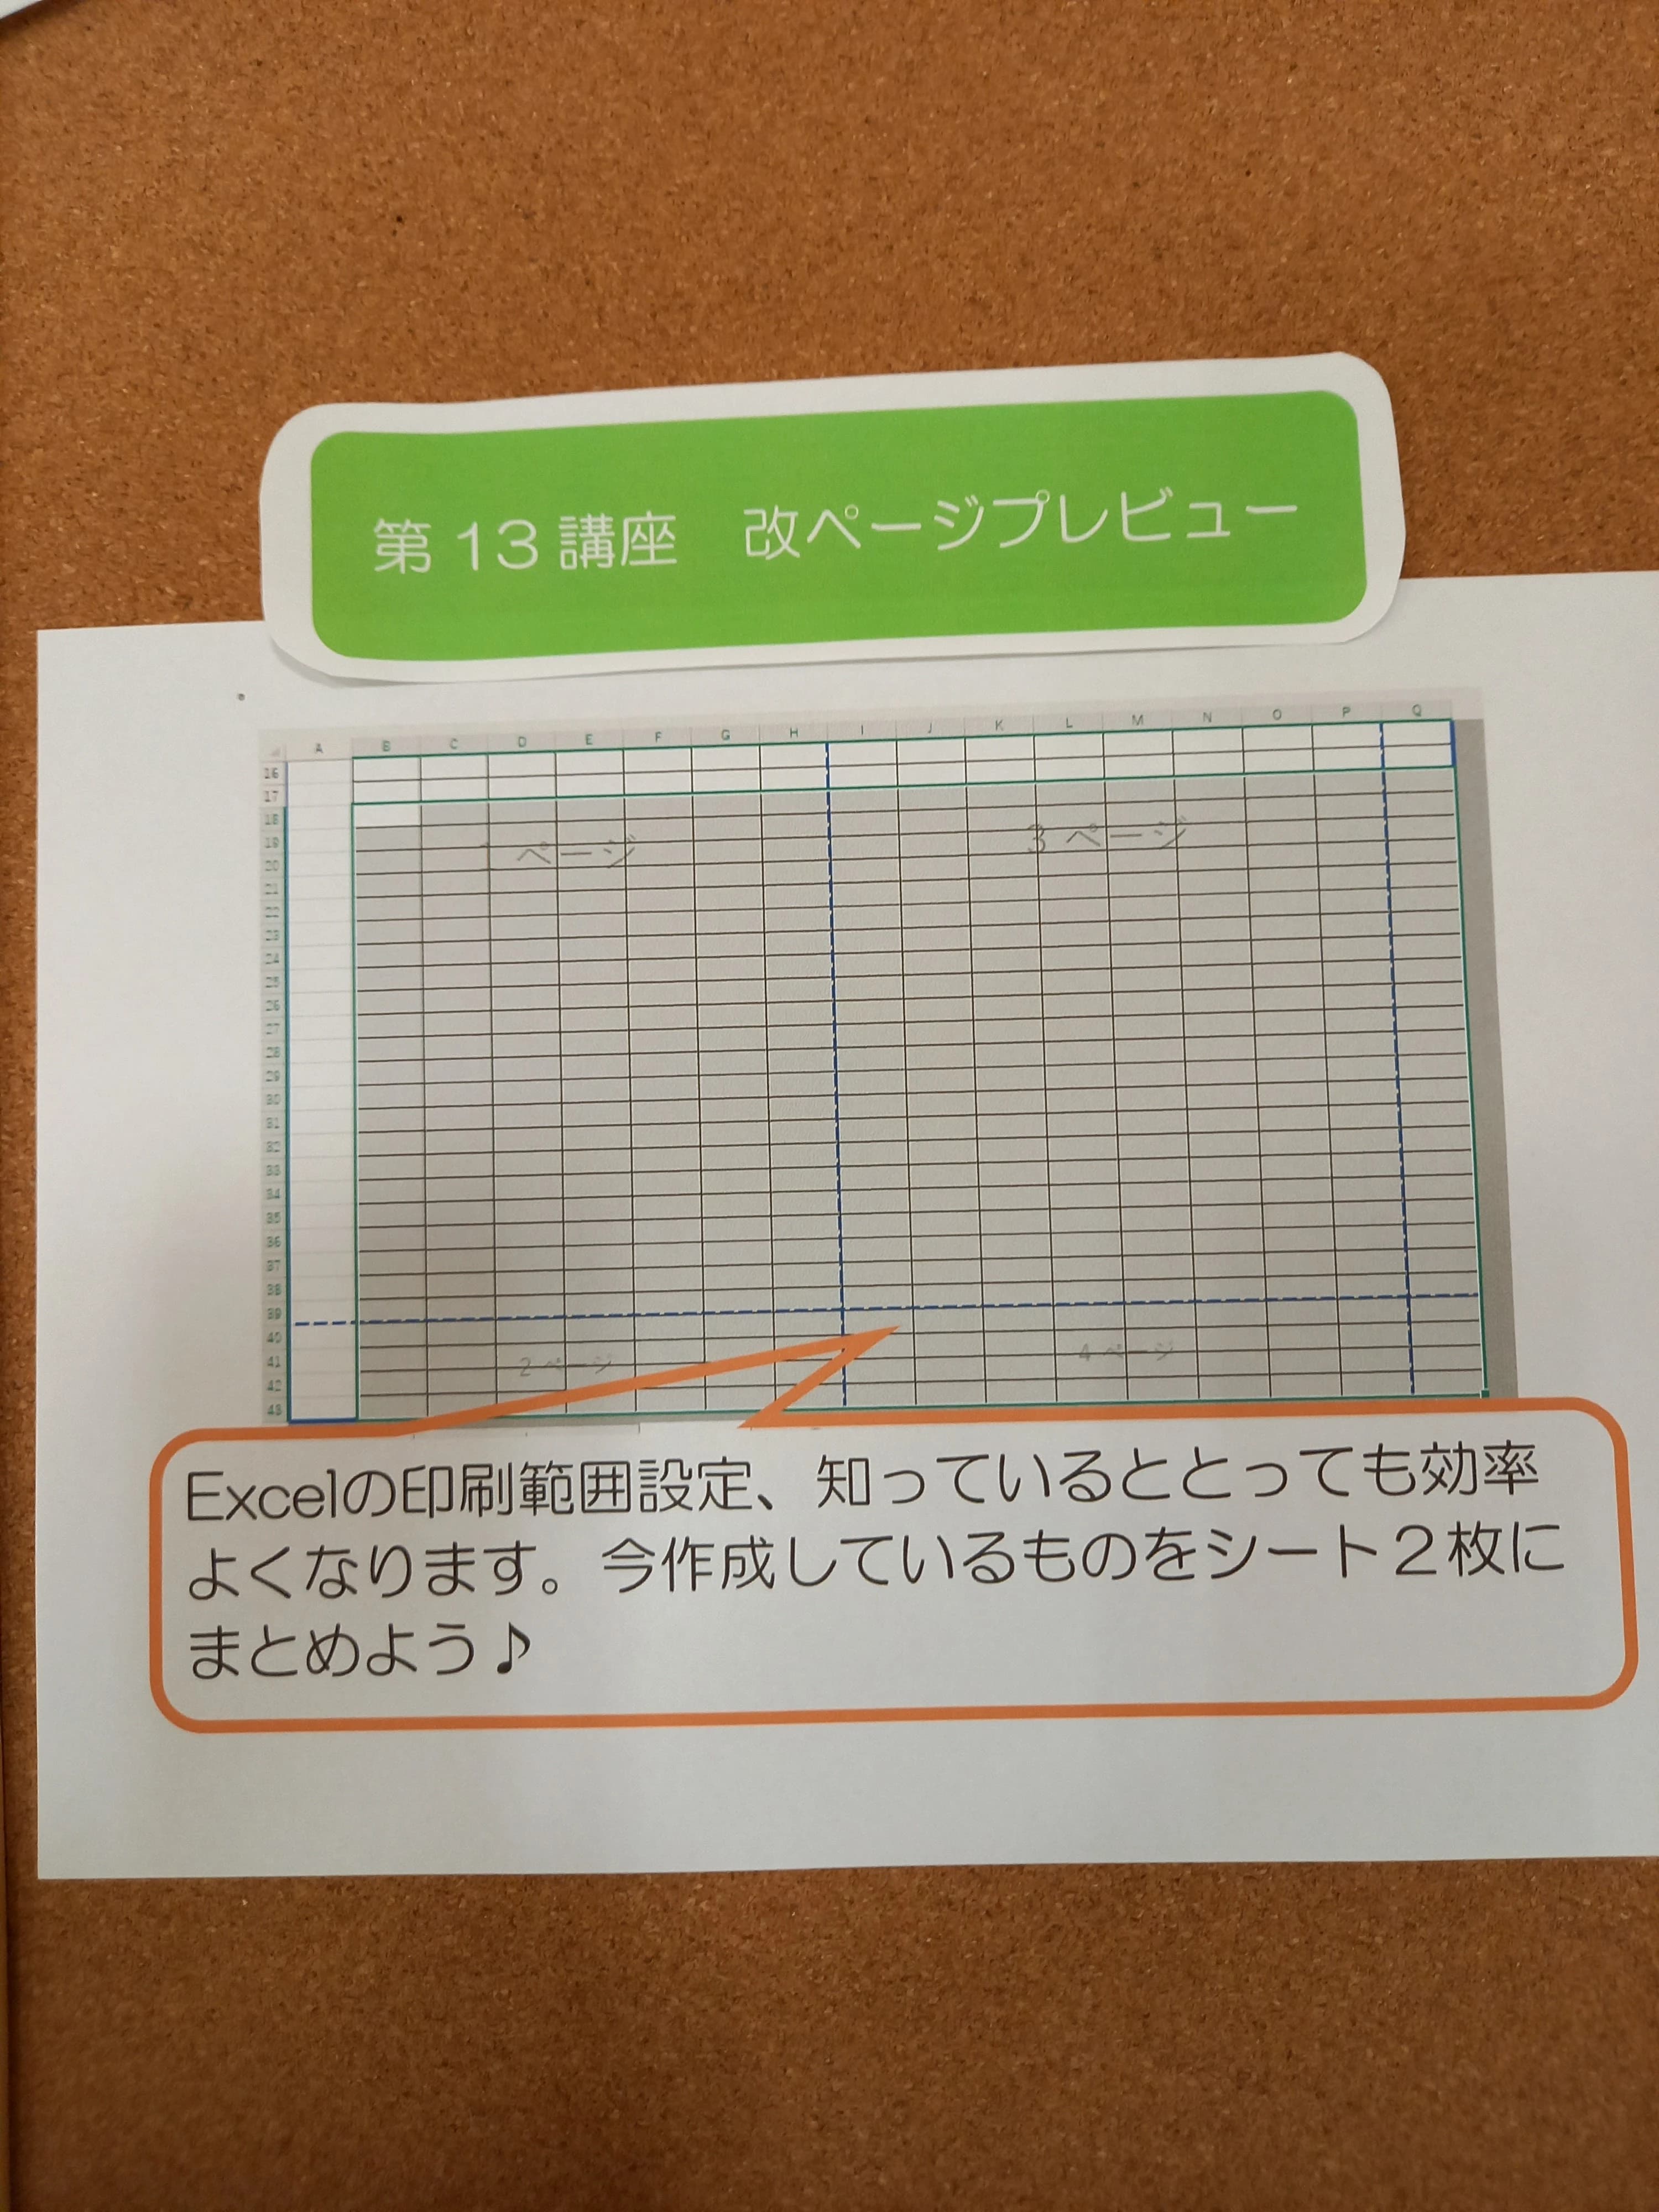 第13講座　改ページプレビュー
A B C D E F G H I J K L M N O P Q
16
17
18
19
20
21
22
23
24
25
26
27
28
29
30
31
32
33
34
35
36
37
38
39
40
41
42
43
1 ページ
3 ページ
2 ページ
4 ページ
Excelの印刷範囲設定、知っているととっても効率
よくなります。今作成しているものをシート２枚に
まとめよう♪